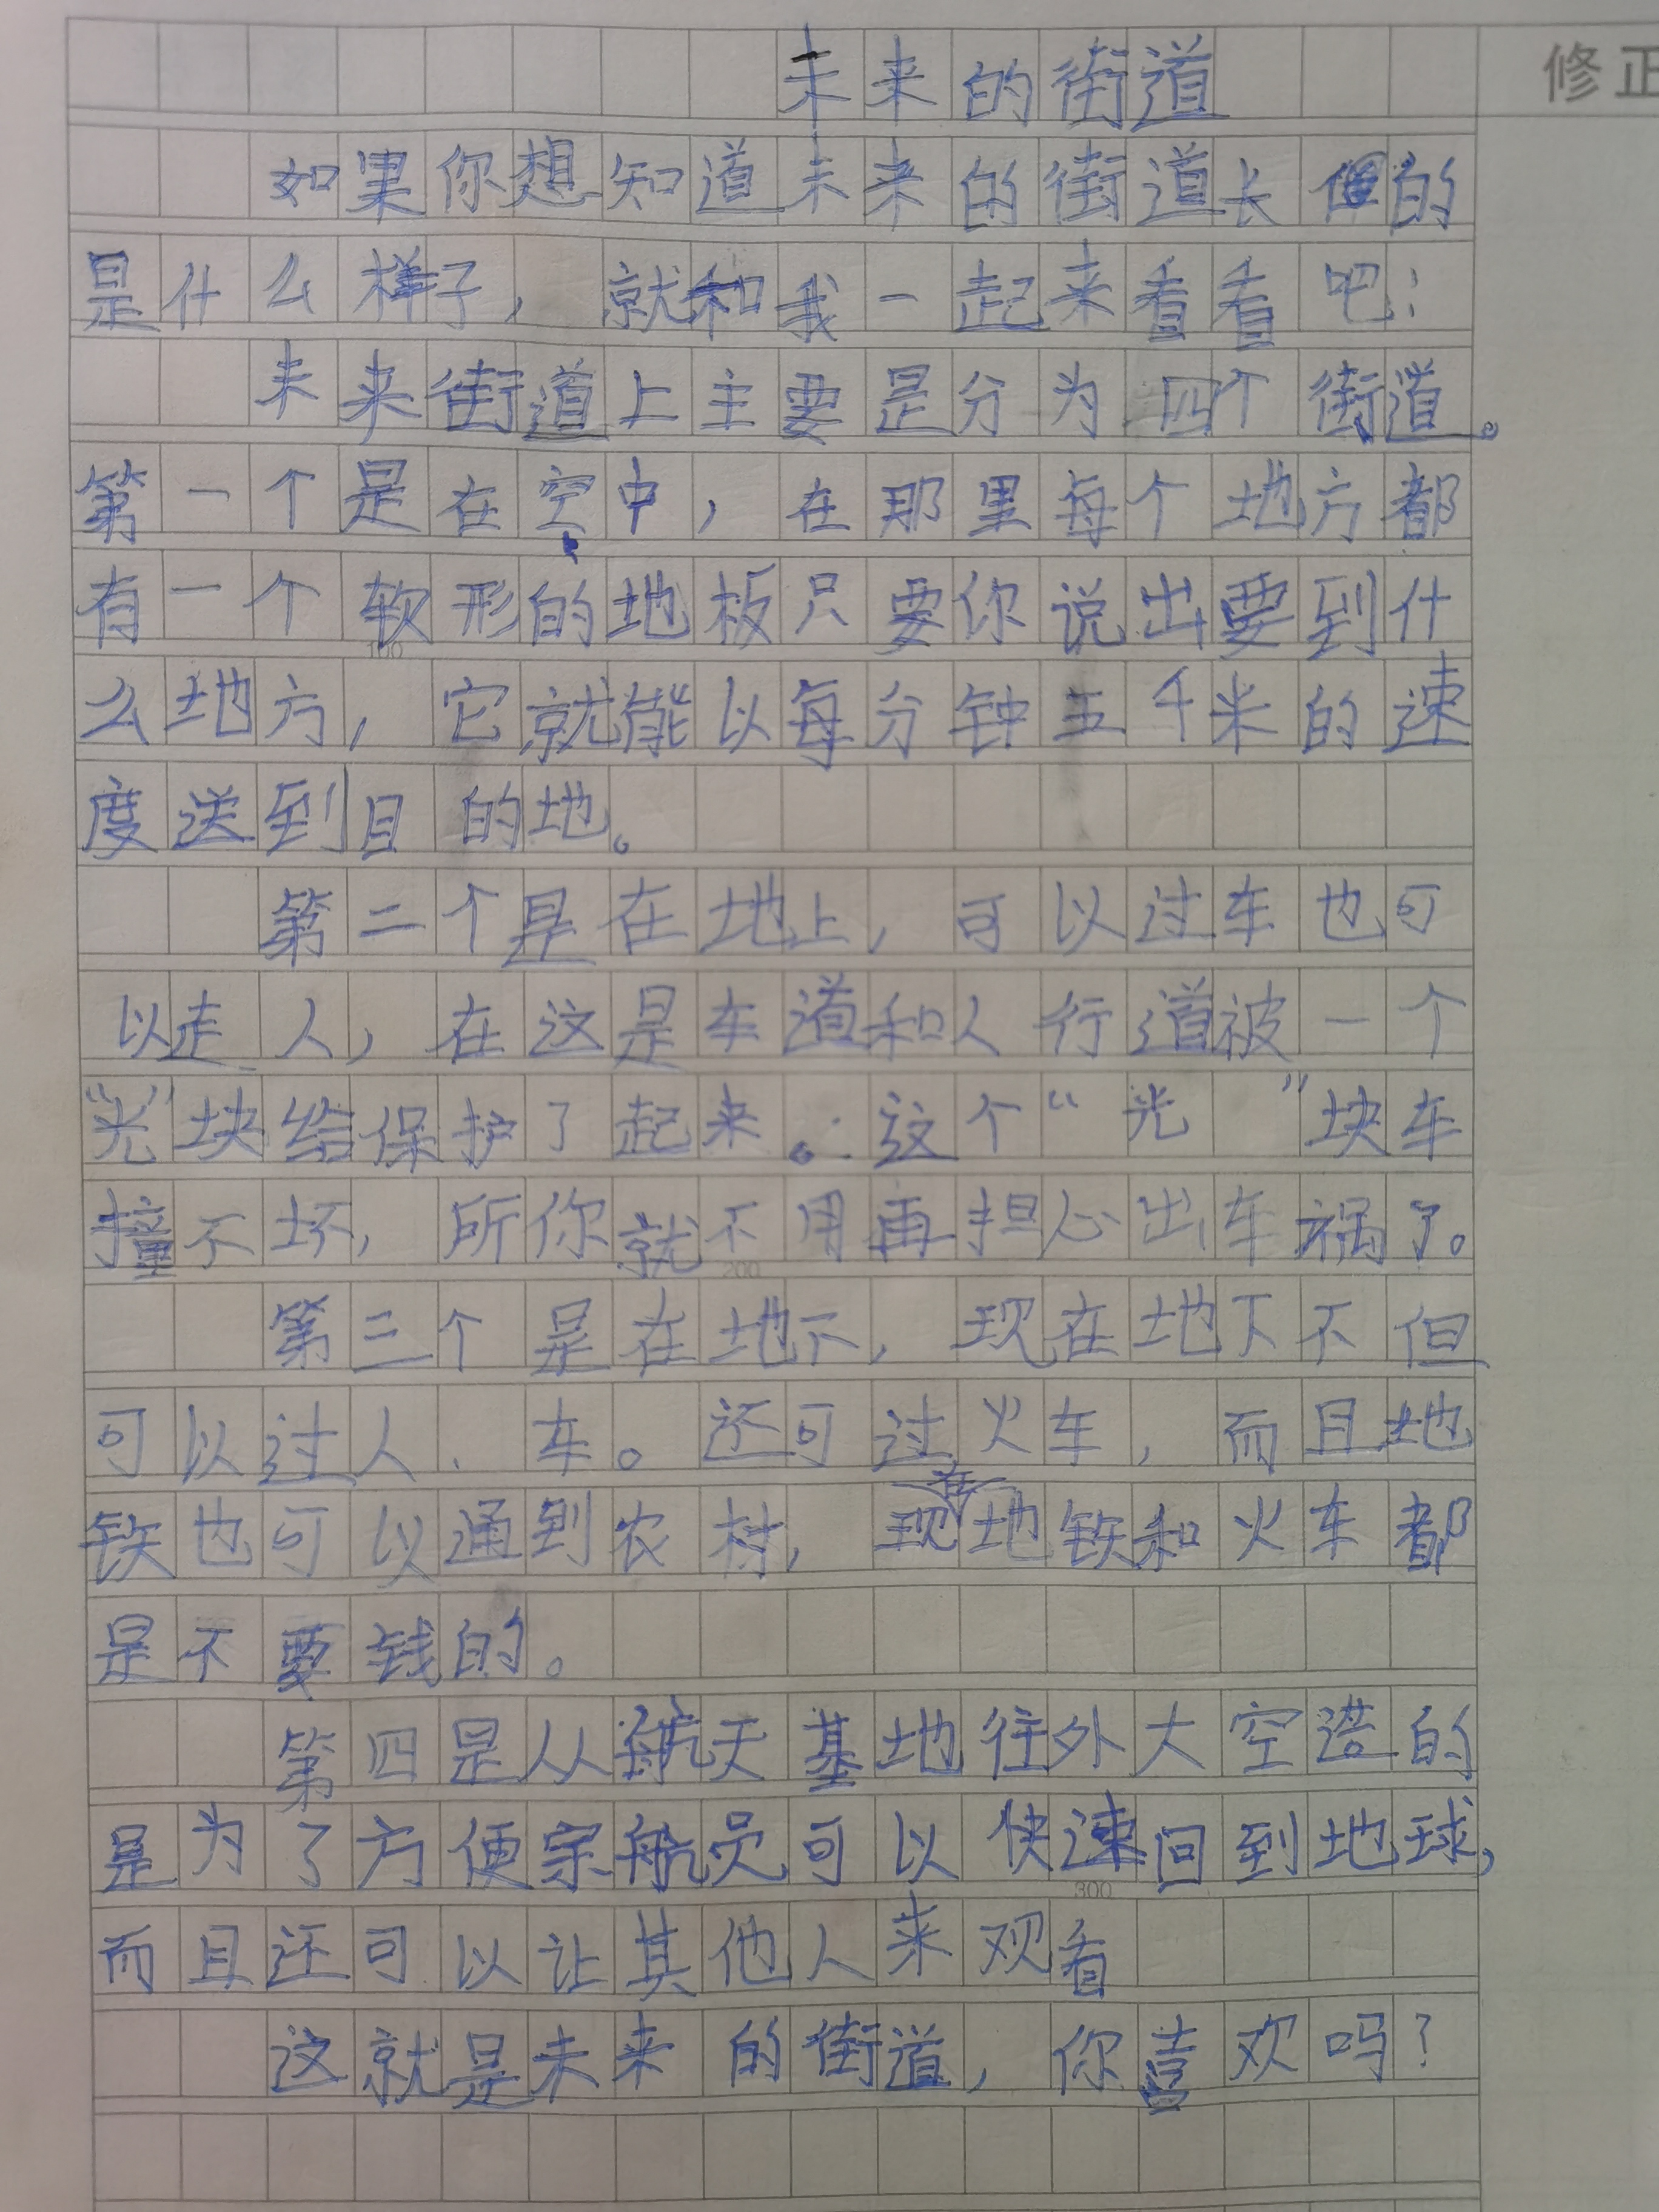 未来的街道
修正
如果你想知道未来的街道长的
是什么样子，就和我一起来看看吧！
未来街道上主要是分为四个街道。
第一个是在空中，在那里每个地方都
有一个软形的地板只要你说出要到什
么地方，它就能以每分钟五千米的速
度送到目的地。
第二个是在地上，可以过车也可
以走人，在这是车道和人行道被一个
“光”块给保护了起来。这个“光”块车
撞不坏，所你就不用再担心出车祸了。
第三个是在地下，现在地下不但
可以过人、车。还可过火车，而且地
铁也可以通到农村，现在地铁和火车都
是不要钱的。
第四是从航天基地往外大空造的
是为了方便宗航员可以快速回到地球，
而且还可以让其他人来观看
这就是未来的街道，你喜欢吗？
100
200
300